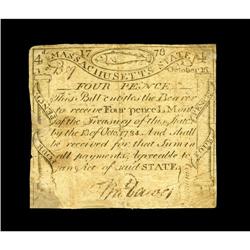 4 17 78 4
MASSACHUSETTS STATE
October 18
FOUR PENCE
This Bill entitles the Bearer
to receive Four pence L. Mony
of the Treasury of this State
by the 18 of Octr. 1784. And shall
be received for that Sum in
all payments, Agreeable to
an Act of said STATE.